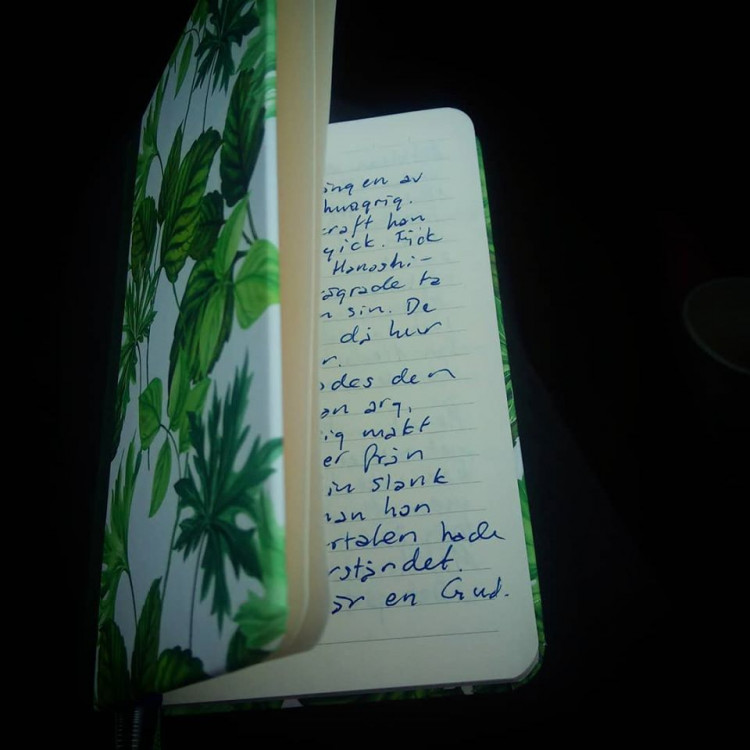 ingen av
hungrig.
kraft han
gick. Fick
Hanoshi-
ågrade ta
n sin. De
då hur
r.
des den
en arg,
ig makt
er från
in slank
han hon
rtalen hade
rståndet.
är en Gud.